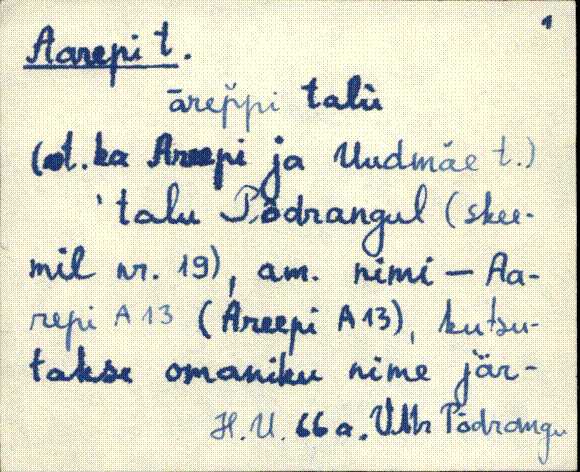 1
Aarepi t.
ārep̆pi talù
(vt. ka Areepi ja Uudmäe t.)
'talu Põdrangul (skee-
mil nr. 19), am. nimi — Aa-
repi A 13 (Areepi A 13), kutsu-
takse omaniku nime jär-
H. U. 66 a. VMr Põdrangu